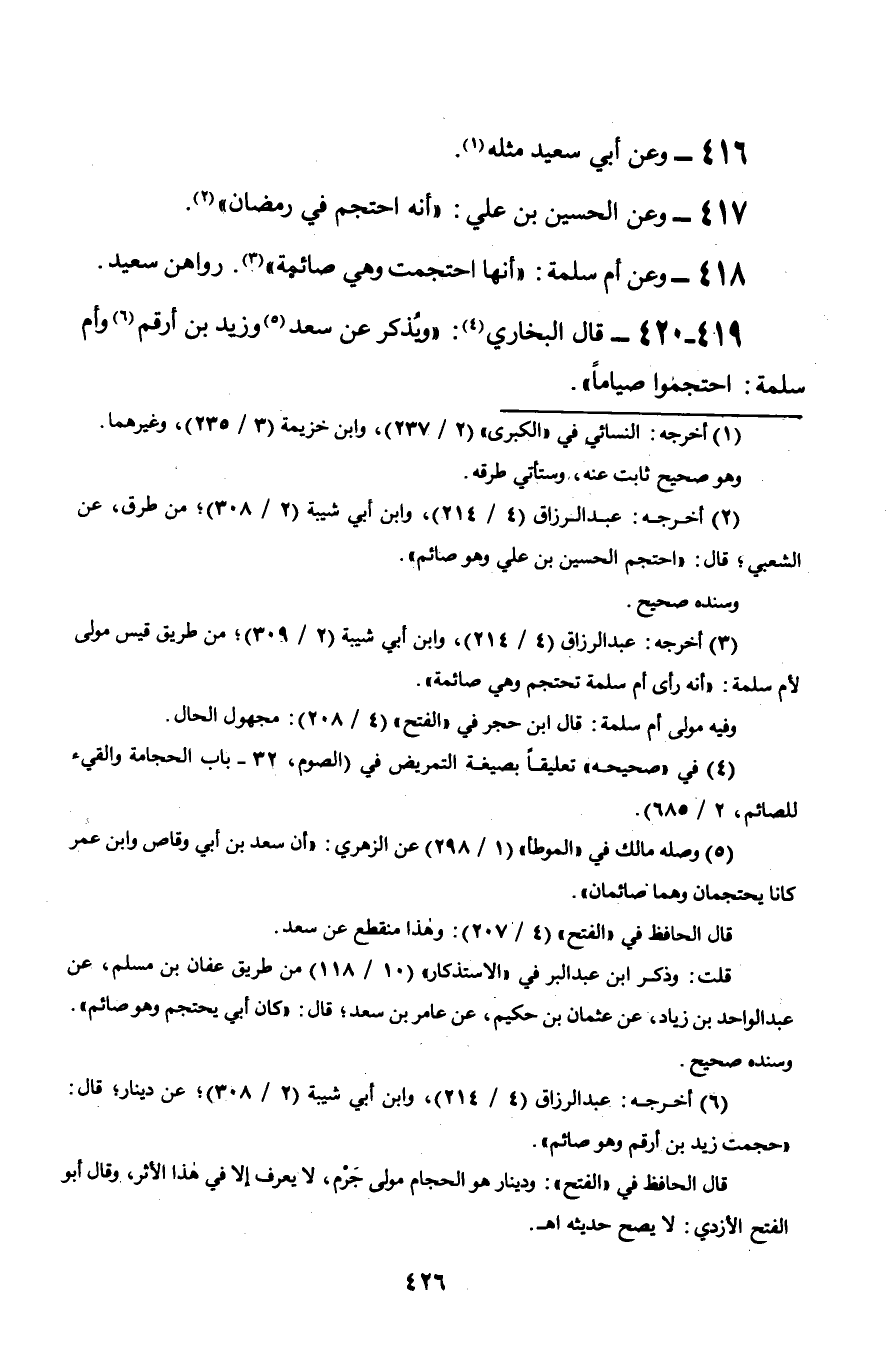 ٤١٦ ـ وعن أبي سعيد مثله(١).
٤١٧ ـ وعن الحسين بن علي: «أنه احتجم في رمضان»(٢).
٤١٨ ـ وعن أم سلمة: «أنها احتجمت وهي صائمة»(٣). رواهن سعيد.
٤١٩-٤٢٠ ـ قال البخاري(٤): «ويُذكر عن سعد(٥) وزيد بن أرقم(٦) وأم
سلمة: احتجموا صياماً».
(١) أخرجه: النسائي في «الكبرى» (٢ / ٢٣٧)، وابن خزيمة (٣ / ٢٣٥)، وغيرهما.
وهو صحيح ثابت عنه، وستأتي طرقه.
(٢) أخرجه: عبدالرزاق (٤ / ٢١٤)، وابن أبي شيبة (٢ / ٣٠٨)؛ من طرق، عن
الشعبي؛ قال: «احتجم الحسين بن علي وهو صائم».
وسنده صحيح.
(٣) أخرجه: عبدالرزاق (٤ / ٢١٤)، وابن أبي شيبة (٢ / ٣٠٩)؛ من طريق قيس مولى
لأم سلمة: «أنه رأى أم سلمة تحتجم وهي صائمة».
وفيه مولى أم سلمة: قال ابن حجر في «الفتح» (٤ / ٢٠٨): مجهول الحال.
(٤) في «صحيحه» تعليقاً بصيغة التمريض في (الصوم، ٣٢ - باب الحجامة والقيء
للصائم، ٢ / ٦٨٥).
(٥) وصله مالك في «الموطأ» (١ / ٢٩٨) عن الزهري: «أن سعد بن أبي وقاص وابن عمر
كانا يحتجمان وهما صائمان».
قال الحافظ في «الفتح» (٤ / ٢٠٧): وهٰذا منقطع عن سعد.
قلت: وذكر ابن عبدالبر في «الاستذكار» (١٠ / ١١٨) من طريق عفان بن مسلم، عن
عبدالواحد بن زياد، عن عثمان بن حكيم، عن عامر بن سعد؛ قال: «كان أبي يحتجم وهو صائم».
وسنده صحيح.
(٦) أخرجه: عبدالرزاق (٤ / ٢١٤)، وابن أبي شيبة (٢ / ٣٠٨)؛ عن دينار؛ قال:
«حجمت زيد بن أرقم وهو صائم».
قال الحافظ في «الفتح»: ودينار هو الحجام مولى جَرْم، لا يعرف إلا في هٰذا الأثر، وقال أبو
الفتح الأزدي: لا يصح حديثه اهـ.
٤٢٦